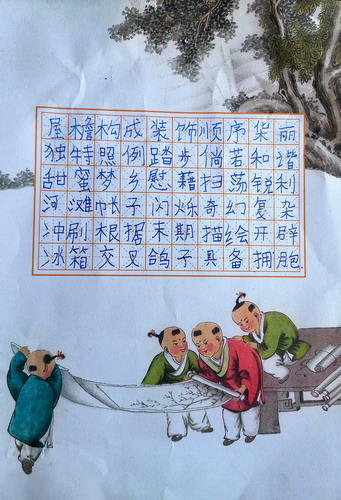 屋檐构成装饰顺序华丽
独特照例踏步倘若和谐
甜蜜梦乡慰藉扫荡锐利
河滩帐子闪烁奇幻复杂
冲刷根据末期描绘开辟
冰箱交叉鸽子具备拥抱